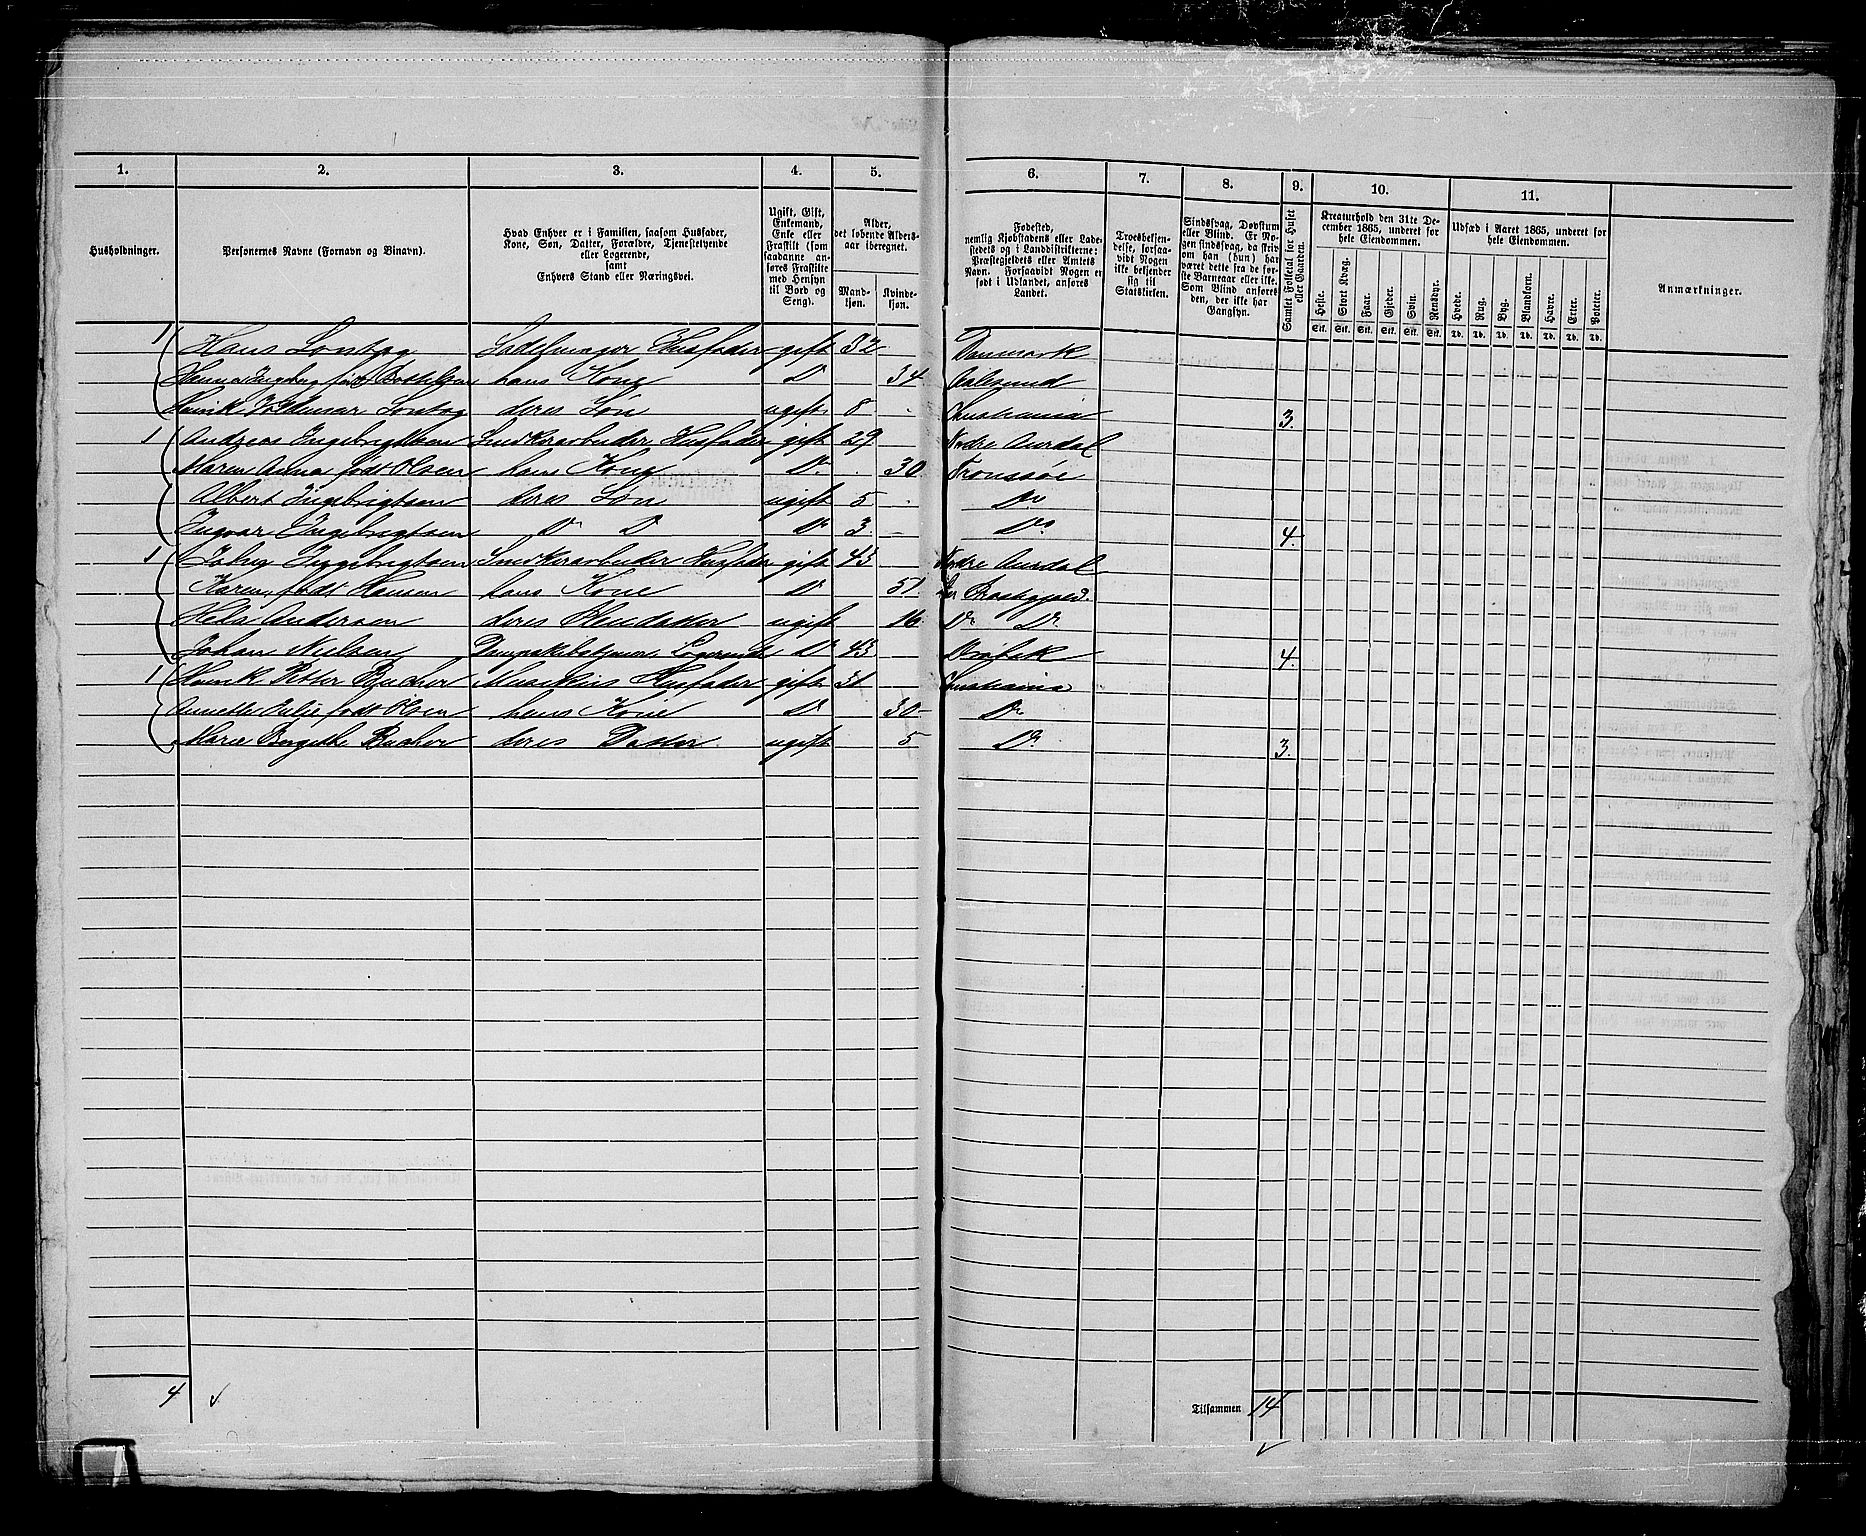 1. 2. 3. 4. 5. 6. 7. 8. 9. 10. 11.
Husholdninger.
Personernes Navne (Fornavn og Binavn).
Hvad Enhver er i Familien, saasom Husfader,
Kone, Søn, Datter, Forældre, Tjenestetyende
eller Logerende,
samt
Enhvers Stand eller Næringsvei.
Ugift, Gift,
Enkemand,
Enke eller
Fraskilt (som
saadanne an-
føres Fraskilte
med Hensyn
til Bord og
Seng).
Alder,
det løbende Alders-
aar iberegnet.
Mand-
kjøn.
Kvinde-
kjøn.
Fødested,
nemlig Kjøbstadens eller Lade-
stedets og i Landdistrikterne:
Præstegjeldets eller Amtets
Navn. Forsaavidt Nogen er
født i Udlandet, anføres
Landet.
Troesbekjen-
delse, forsaa-
vidt Nogen
ikke bekjender
sig til
Statskirken.
Sindssvag, Døvstum
eller Blind. Er No-
gen sindssvag, da skriv
om han (hun) har
været dette fra de før-
ste Barneaar eller ikke.
Som Blind anføres
den, der ikke har
Gangsyn.
Samlet Folketal for Huset
eller Gaarden.
Kreaturhold den 31te De-
cember 1865, underet for
hele Eiendommen.
Heste. Stort Kvæg. Faar. Gjeder. Svin. Rensdyr.
Stk. Stk. Stk. Stk. Stk. Stk.
Udsæd i Aaret 1865, underet for
hele Eiendommen.
Hvede. Rug. Byg. Blandkorn. Havre. Erter. Poteter.
Td. Td. Td. Td. Td. Td. Td.
Anmærkninger.
1 Hans Husfader gift 32 Danmark
født hans Kone Do 34 Aalesund
deres Søn ugift 8 Christiania 3.
1 Andreas Ingebrigtsen Snedkerarbeider Husfader gift 29 Nordre Aurdal
Maren Anna født Olsen hans Kone Do 30 Tromsøe
Albert Ingebrigtsen deres Søn ugift 5 Do
Ingvar Ingebrigtsen Do Do Do 3 Do 4.
1 Ingebrigtsen Snedkerarbeider Husfader gift 43 Nordre Aurdal
Karen født Hansen hans Kone Do 51
Andersen deres ugift 16 Do Do
Johan Nielsen Logerende Do 43 Drøbak 4.
1 Henrik Petter Bucher Musikus Husfader gift 31 Christiania
Annette Julie født Olsen hans Kone Do 30 Do
Marie Bergithe Bucher deres Datter ugift 5 Do 3.
4
Tilsammen 14